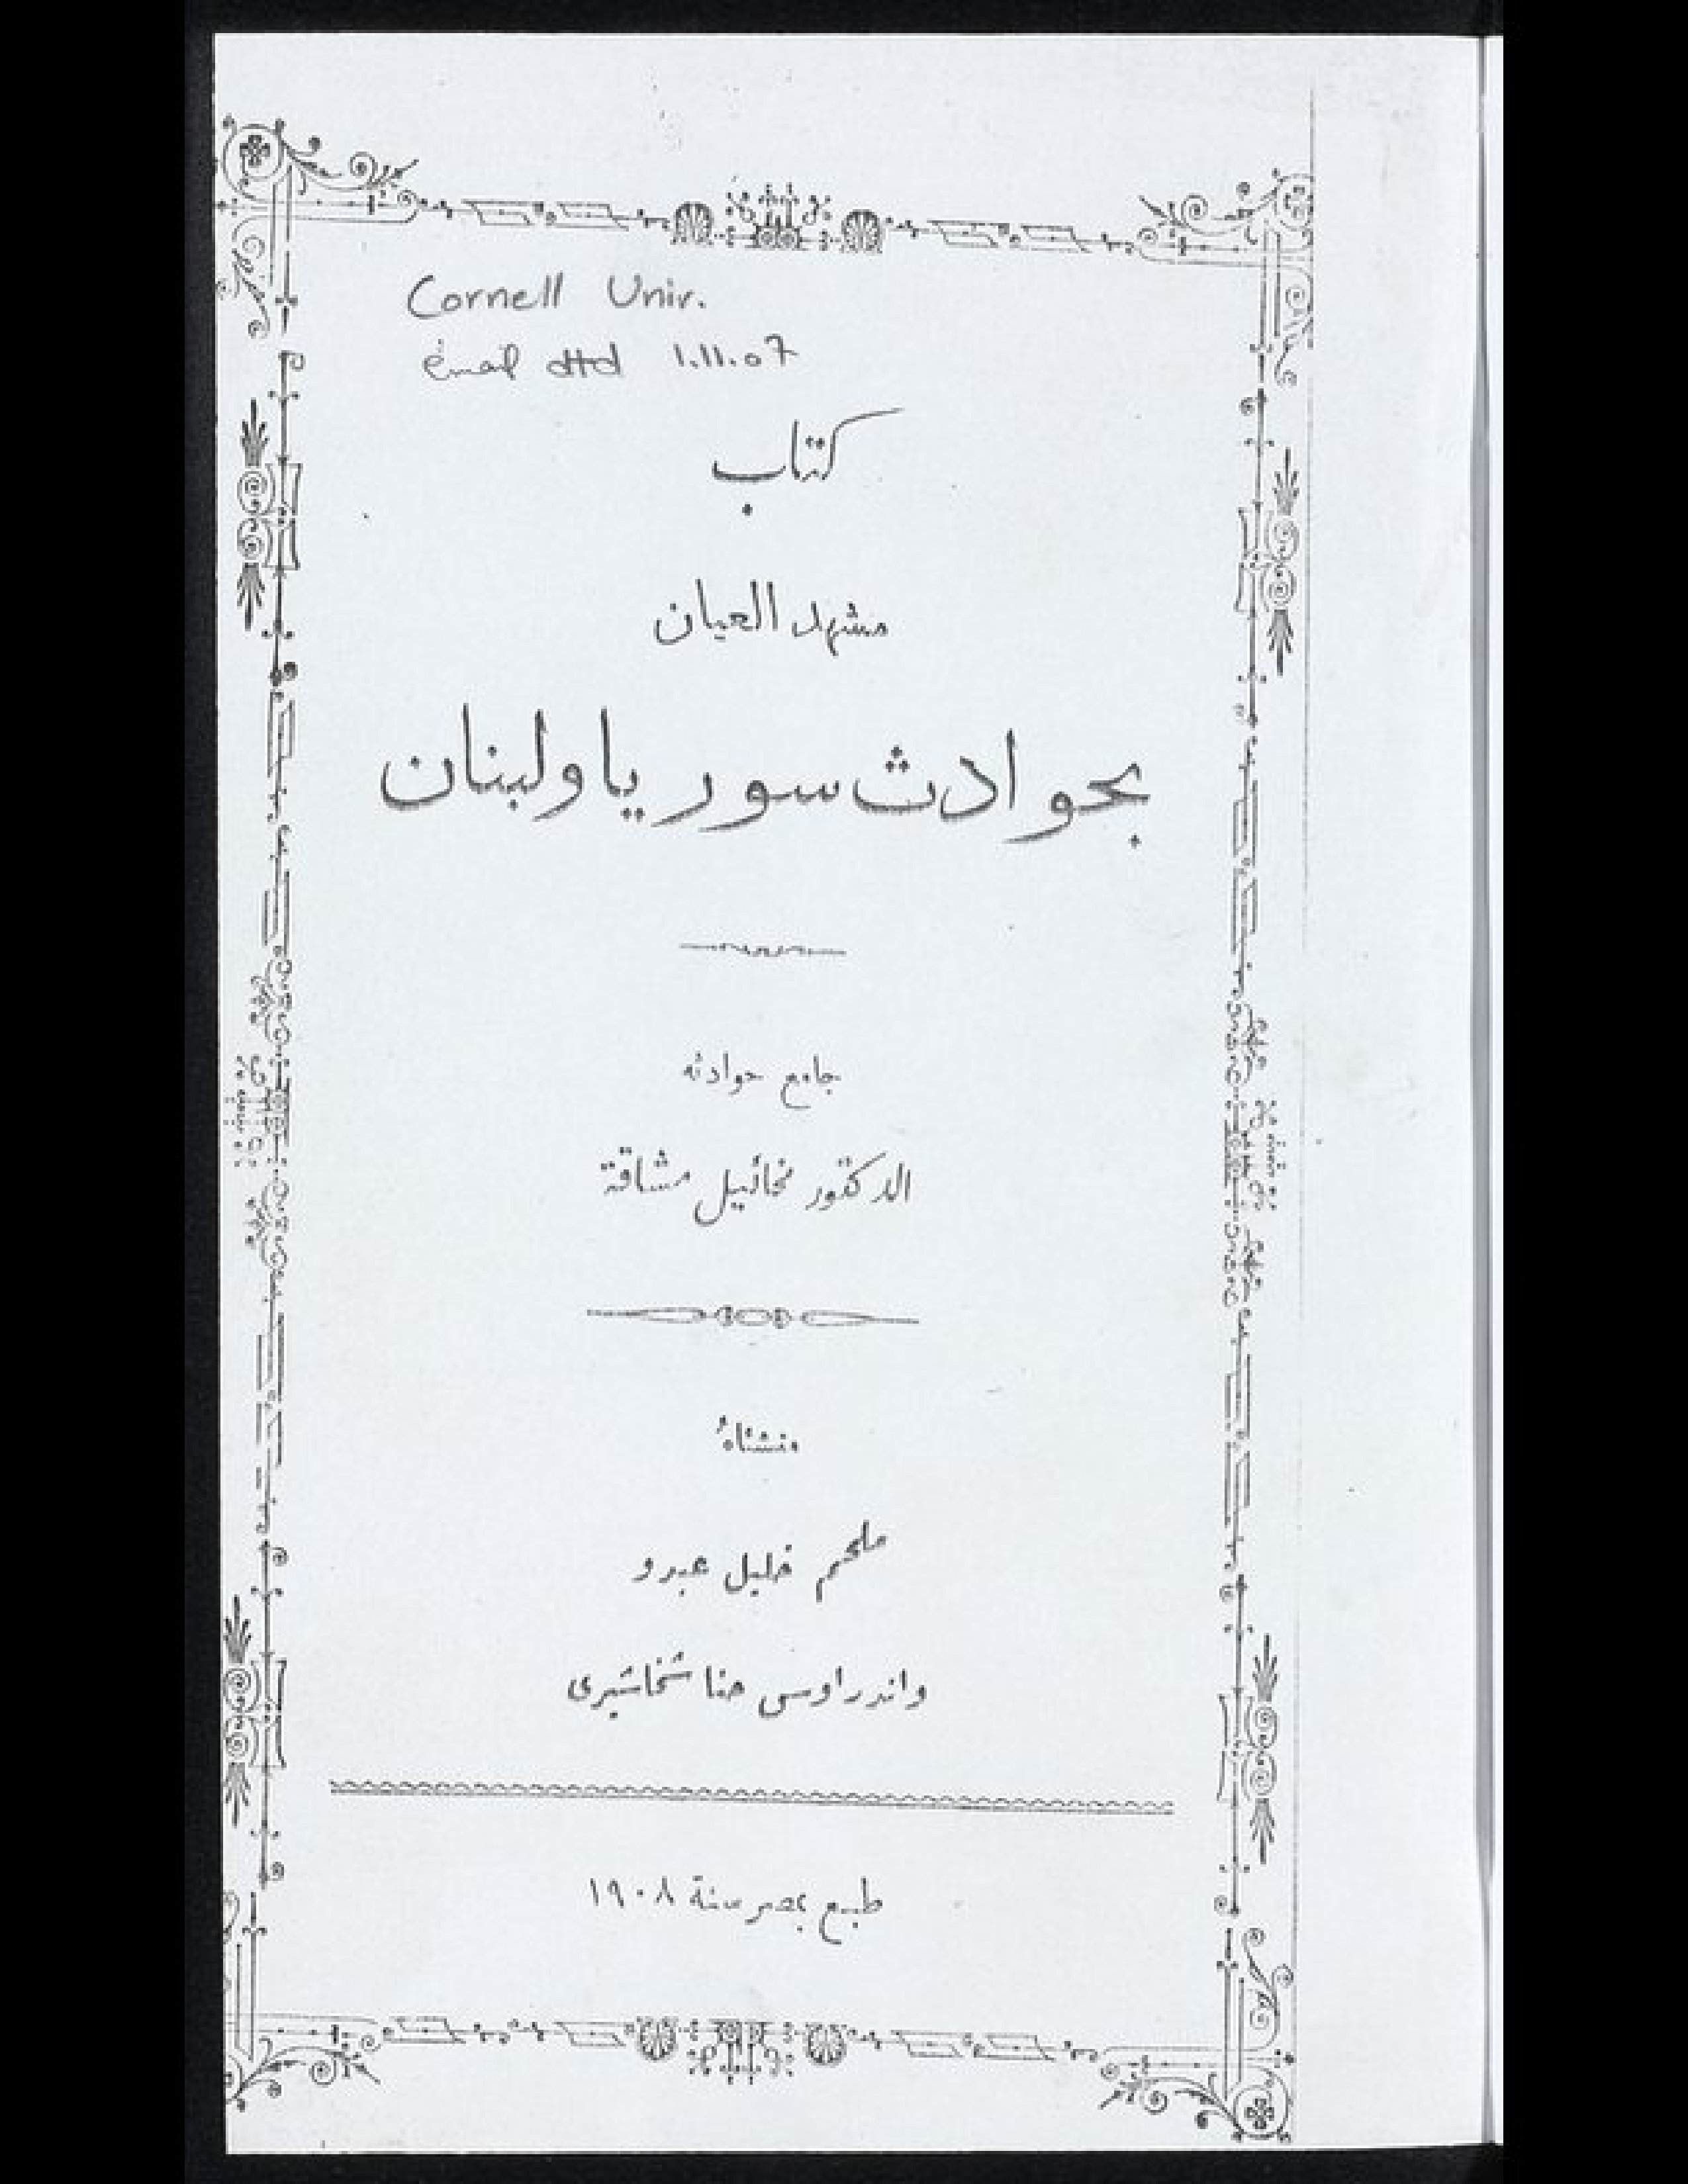 Cornell Univ.
email dtd 1.11.07
كتاب
مشهد العيان
بحوادث سوريا ولبنان
جامع حوادثه
الدكتور مخائيل مشاقة
منشئاهُ
ملحم خليل عبدو
واندراوس حنا شخاشيرى
طبع بمصر سنة ١٩٠٨